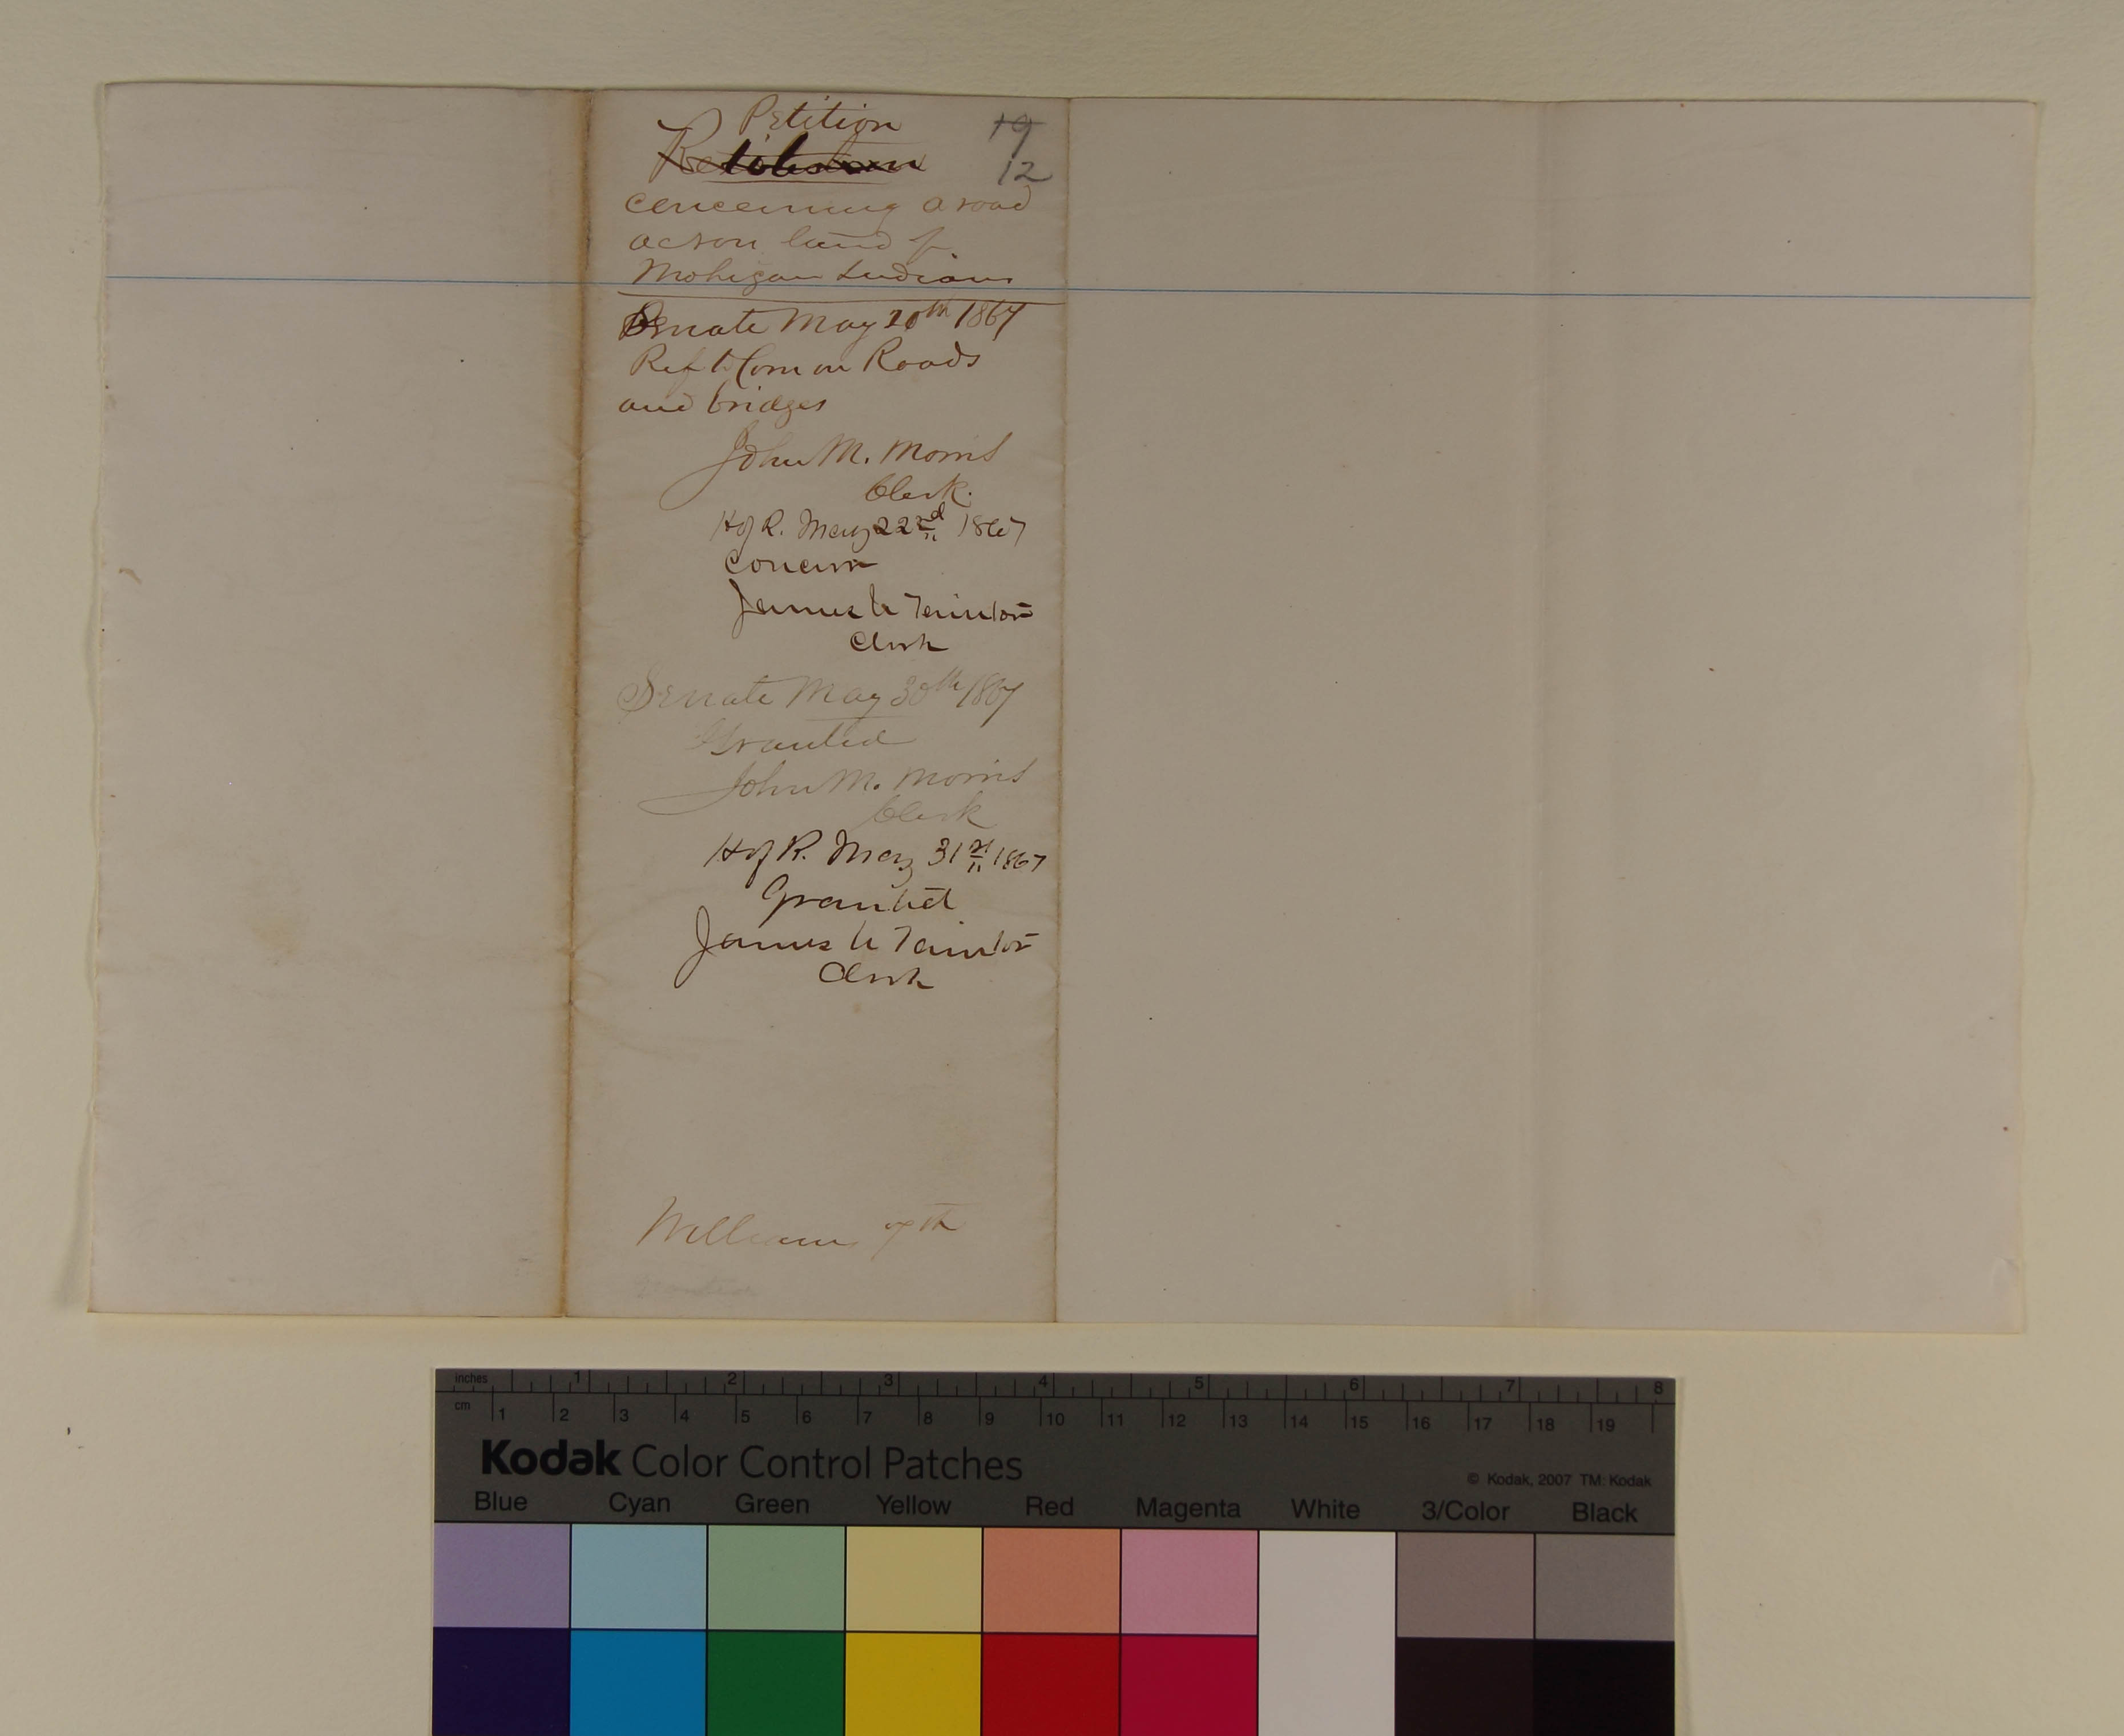 Petition
Resolution
19
12
concerning a road
across land of
Mohegan Indians
Senate May 20th 1867
Ref to Com on Roads
and bridges
John M. Morris
Clerk.
H of R. May 22nd 1867
Concur
James U Taintor
Clerk
Senate May 30th 1867
Granted
John M. Morris
Clerk
H of R. May 31st 1867
Granted
James U Taintor
Clerk
Williams 7th
inches 1 2 3 4 5 6 7 8
cm 1 2 3 4 5 6 7 8 9 10 11 12 13 14 15 16 17 18 19
Kodak Color Control Patches
© Kodak, 2007 TM: Kodak
Blue Cyan Green Yellow Red Magenta White 3/Color Black